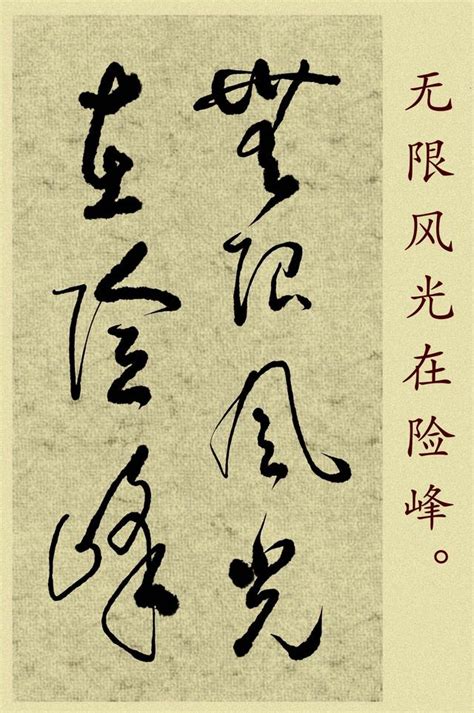 无限风光在险峰。
無限风光
在险峰